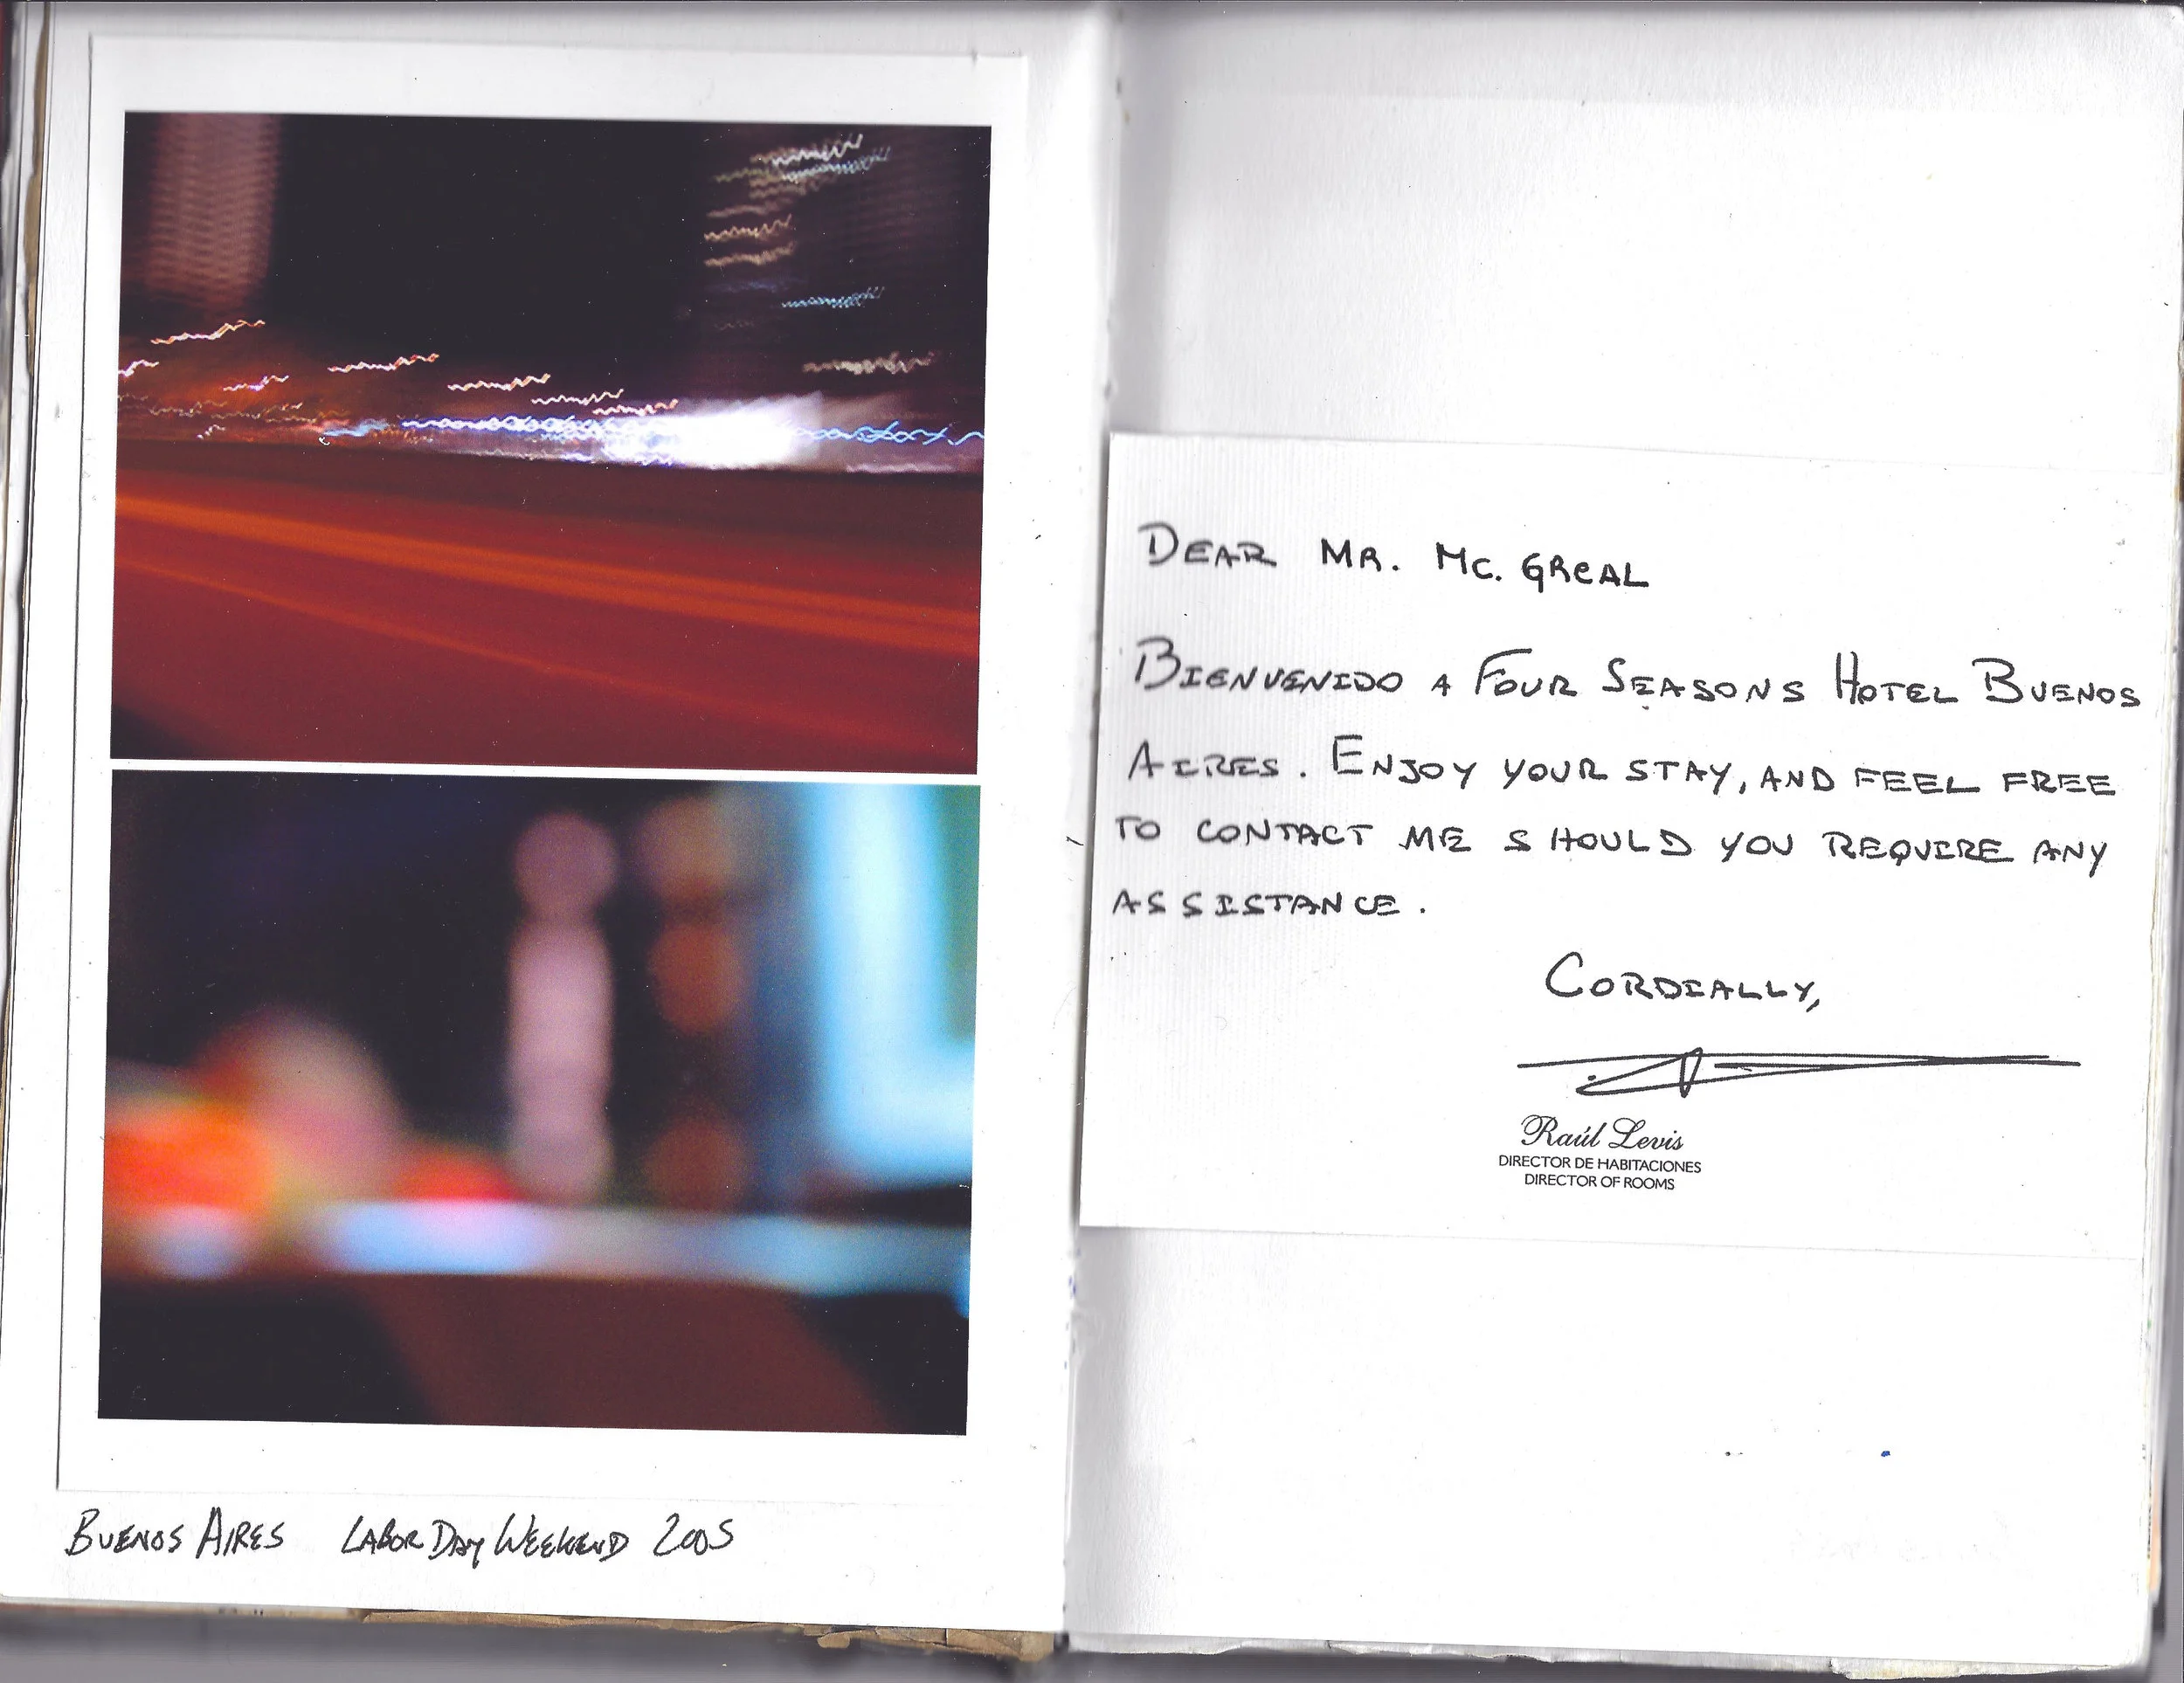 Buenos Aires Labor Day Weekend 2005
Dear Mr. Mc. Greal
Bienvenido a Four Seasons Hotel Buenos
Aires. Enjoy your stay, and feel free
to contact me should you require any
assistance.
Cordially,
Raúl Levis
DIRECTOR DE HABITACIONES
DIRECTOR OF ROOMS